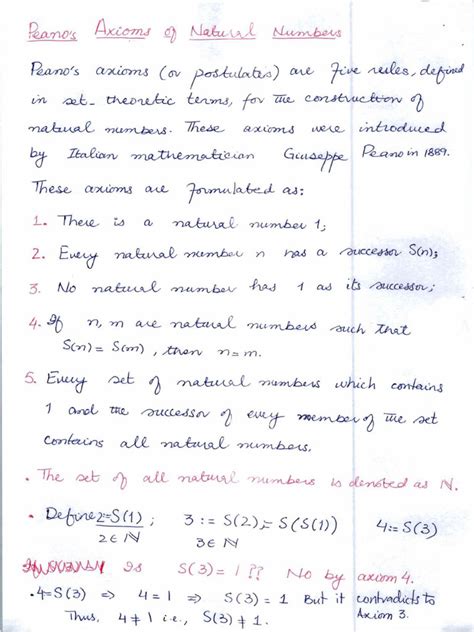 Peano's Axioms of Natural Numbers
Peano's axioms (or postulates) are five rules, defined
in set-theoretic terms, for the construction of
natural numbers. These axioms were introduced
by Italian mathematician Giuseppe Peano in 1889.
These axioms are formulated as:
1. There is a natural number 1;
2. Every natural number n has a successor S(n);
3. No natural number has 1 as its successor;
4. If n, m are natural numbers such that
S(n) = S(m), then n=m.
5. Every set of natural numbers which contains
1 and the successor of every member of the set
contains all natural numbers.
• The set of all natural numbers is denoted as ℕ.
• Define 2=S(1); 3:= S(2)= S(S(1)) 4:= S(3)
2∈ℕ 3∈ℕ
Is S(3)=1?? No by axiom 4.
• 4=S(3) ⇒ 4=1 ⇒ S(3)=1 But it contradicts to
Axiom 3.
Thus, 4≠1 i.e., S(3)≠1.